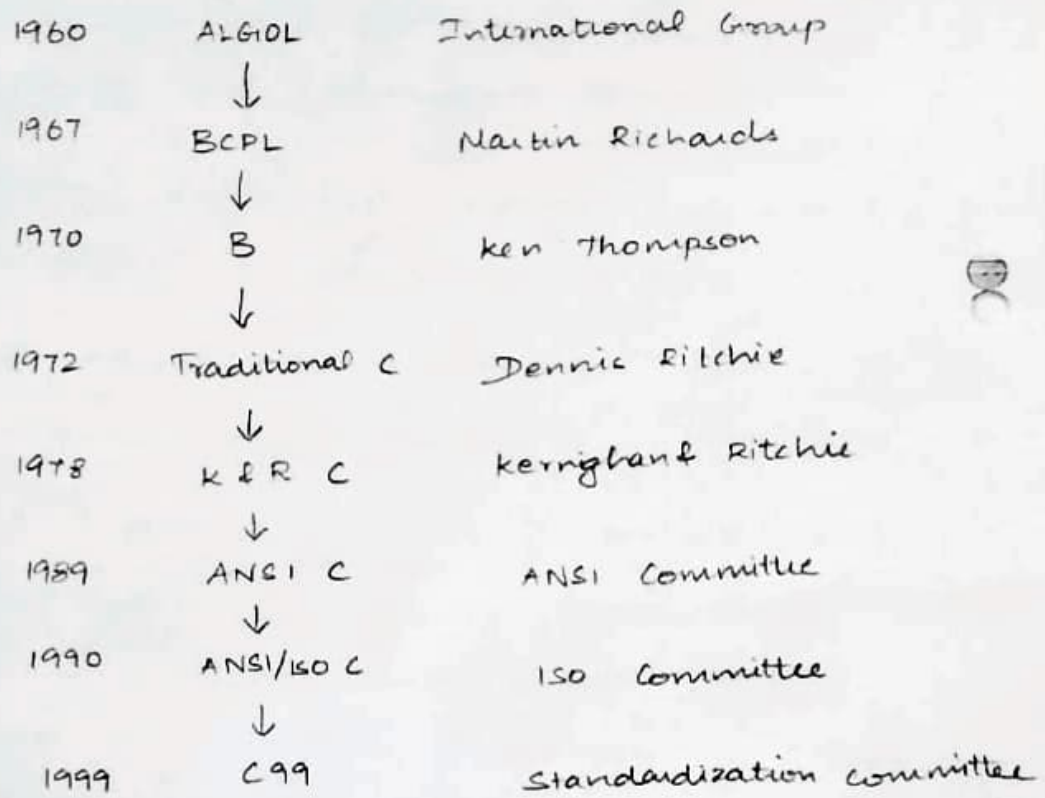 1960 ALGOL International Group
1967 BCPL Martin Richards
1970 B Ken Thompson
1972 Traditional C Dennis Ritchie
1978 K & R C Kernighan & Ritchie
1989 ANSI C ANSI Committee
1990 ANSI/ISO C ISO Committee
1999 C99 Standardization committee